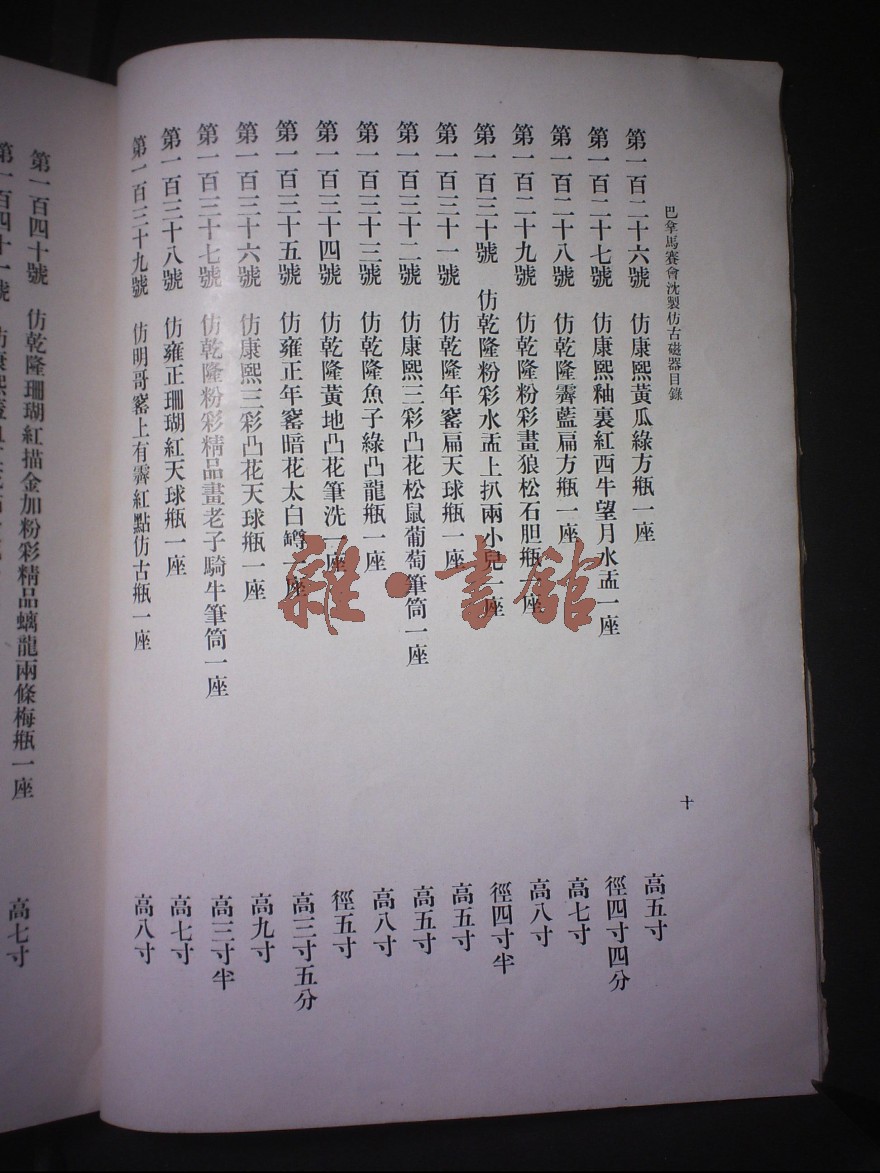 巴拿馬賽會沈製仿古磁器目錄
十
第一百二十六號 仿康熙黃瓜綠方瓶一座 高五寸
第一百二十七號 仿康熙釉裏紅西牛望月水盂一座 徑四寸四分
第一百二十八號 仿乾隆霽藍扁方瓶一座 高七寸
第一百二十九號 仿乾隆粉彩畫狼松石胆瓶一座 高八寸
第一百三十號 仿乾隆粉彩水盂上扒兩小兒一座 徑四寸半
第一百三十一號 仿乾隆年窰扁天球瓶一座 高五寸
第一百三十二號 仿康熙三彩凸花松鼠葡萄筆筒一座 高五寸
第一百三十三號 仿乾隆魚子綠凸龍瓶一座 高八寸
第一百三十四號 仿乾隆黃地凸花筆洗一座 徑五寸
第一百三十五號 仿雍正年窰暗花太白罇一座 高三寸五分
第一百三十六號 仿康熙三彩凸花天球瓶一座 高九寸
第一百三十七號 仿乾隆粉彩精品畫老子騎牛筆筒一座 高三寸半
第一百三十八號 仿雍正珊瑚紅天球瓶一座 高七寸
第一百三十九號 仿明哥窰上有霽紅點仿古瓶一座 高八寸
第一百四十號 仿乾隆珊瑚紅描金加粉彩精品螭龍兩條梅瓶一座 高七寸
第一百四十一號 仿康熙
雜·書館